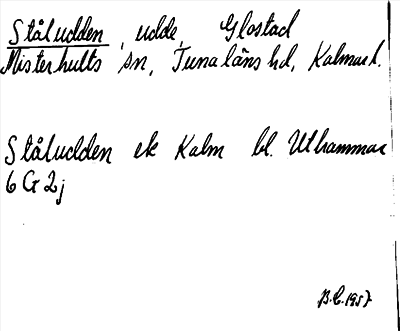 Ståludden, udde, Glostad
Misterhults sn, Tunaläns hd, Kalmar l.
Ståludden ek Kalm bl. Uthammar
6 G 2j
B.L. 1957